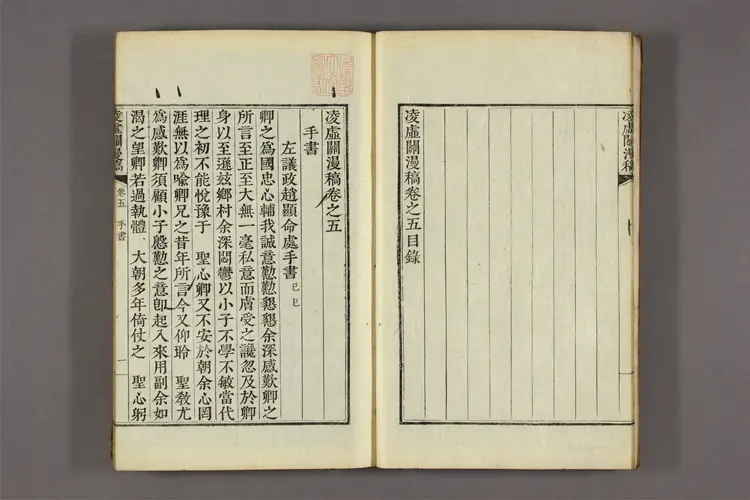 凌虛關漫稿
凌虛關漫稿卷之五目錄
凌虛關漫稿卷之五
手書
左議政趙顯命處手書 己巳
卿之爲國忠心輔我誠意懃懃懇懇余深感歎卿之
所言至正至大無一毫私意而膚受之讒忽及於卿
身以至遜玆鄕村余深悶鬱以小子不學不敏當代
理之初不能悅豫于 聖心卿又不安於朝余心罔
涯無以爲喩卿兄之昔年所言今又仰聆 聖敎尤
爲感歎卿須顧小子慇懃之意卽起入來用副余如
渴之望卿若過執體 大朝多年倚仗之 聖心躬
凌虛關漫稿
卷五 手書
一